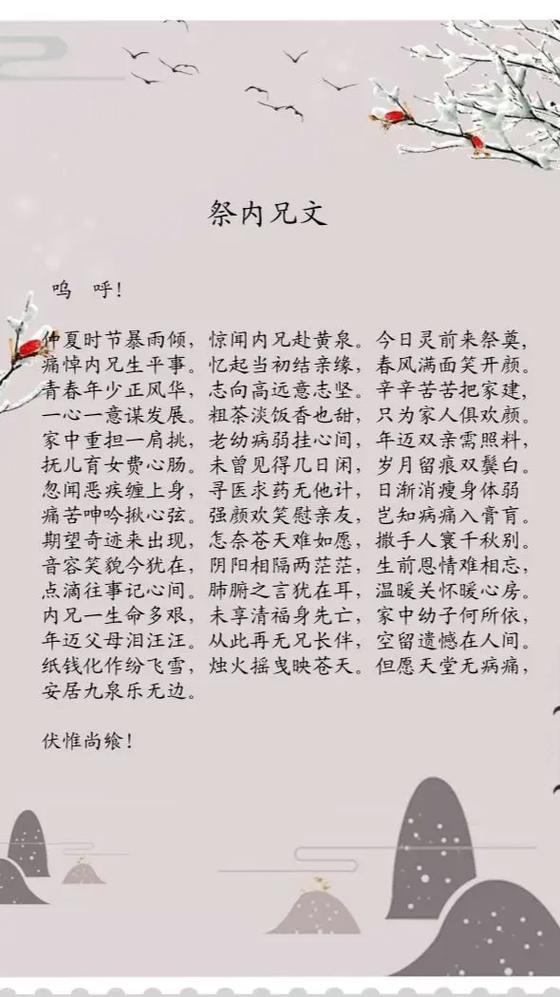 祭内兄文
呜 呼！
仲夏时节暴雨倾，惊闻内兄赴黄泉。今日灵前来祭奠，
痛悼内兄生平事。忆起当初结亲缘，春风满面笑开颜。
青春年少正风华，志向高远意志坚。辛辛苦苦把家建，
一心一意谋发展。粗茶淡饭香也甜，只为家人俱欢颜。
家中重担一肩挑，老幼病弱挂心间，年迈双亲需照料，
抚儿育女费心肠。未曾见得几日闲，岁月留痕双鬓白。
忽闻恶疾缠上身，寻医求药无他计，日渐消瘦身体弱
痛苦呻吟揪心弦。强颜欢笑慰亲友，岂知病痛入膏肓。
期望奇迹来出现，怎奈苍天难如愿，撒手人寰千秋别。
音容笑貌今犹在，阴阳相隔两茫茫，生前恩情难相忘，
点滴往事记心间。肺腑之言犹在耳，温暖关怀暖心房。
内兄一生命多艰，未享清福身先亡，家中幼子何所依，
年迈父母泪汪汪。从此再无兄长伴，空留遗憾在人间。
纸钱化作纷飞雪，烛火摇曳映苍天。但愿天堂无病痛，
安居九泉乐无边。
伏惟尚飨！